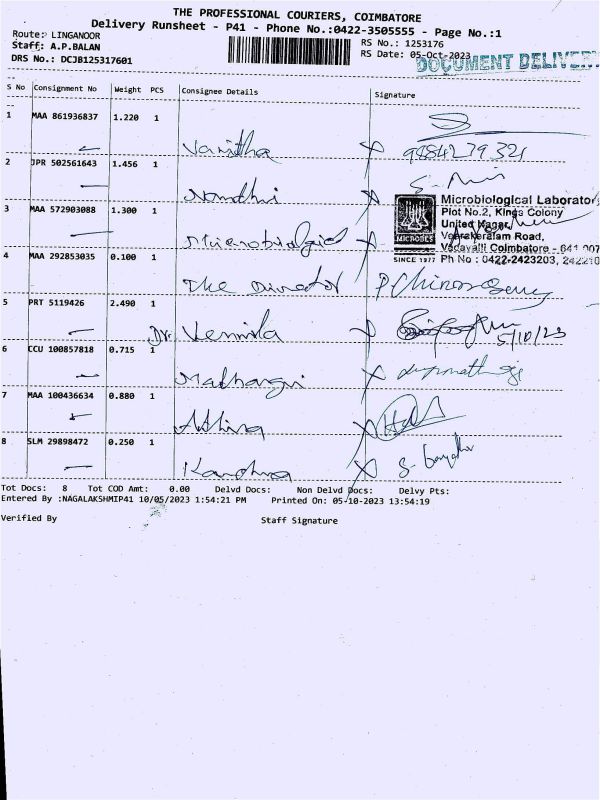 THE PROFESSIONAL COURIERS, COIMBATORE
Delivery Runsheet - P41 - Phone No.:0422-3505555 - Page No.:1
Route: LINGANOOR
RS No.: 1253176
Staff: A.P.BALAN
RS Date: 05-Oct-2023
DRS No.: DCJB125317601
DOCUMENT DELIVER
S No Consignment No Weight PCS Consignee Details Signature
1 MAA 861936837 1.220 1
Vanitha 9984279321
2 JPR 502561643 1.456 1
Nandhi
3 MAA 572903088 1.300 1
Microbiological
Microbiological Laborator
Plot No.2, Kings Colony
United Nagar,
Veerakeralam Road,
Vadavalli Coimbatore - 641 007
Ph No : 0422-2423203, 242210
MICROBES
SINCE 1977
4 MAA 292853035 0.100 1
The Director
5 PRT 5119426 2.490 1
Dr. Vennila 5/10/23
6 CCU 100857818 0.715 1
Mathangi
7 MAA 100436634 0.880 1
Athira
8 SLM 29898472 0.250 1
Tot Docs: 8 Tot COD Amt: 0.00 Delvd Docs: Non Delvd Docs: Delvy Pts:
Entered By :NAGALAKSHMIP41 10/05/2023 1:54:21 PM Printed On: 05-10-2023 13:54:19
Verified By Staff Signature